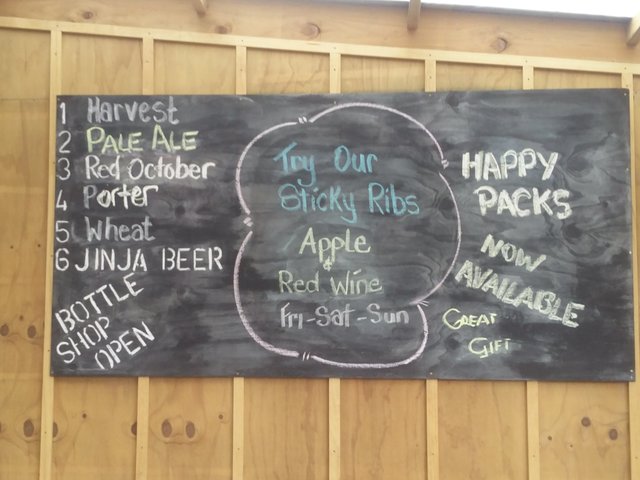 1 Harvest
2 PALE ALE
3 Red October
4 Porter
5 Wheat
6 JINJA BEER
BOTTLE
SHOP
OPEN
Try Our
Sticky Ribs
Apple
&
Red Wine
Fri-Sat-Sun
HAPPY
PACKS
NOW
AVAILABLE
GREAT
GIFT